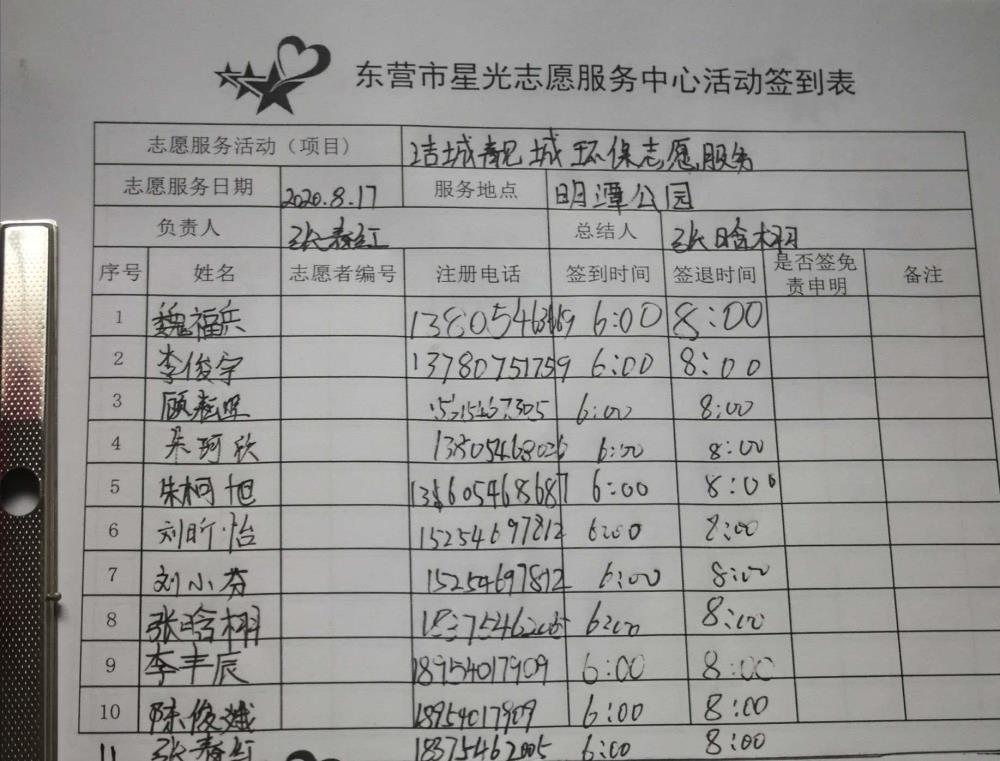 东营市星光志愿服务中心活动签到表
志愿服务活动（项目） 洁城靓城环保志愿服务
志愿服务日期 2020.8.17 服务地点 明潭公园
负责人 张春红 总结人 张晗栩
序号 姓名 志愿者编号 注册电话 签到时间 签退时间 是否签免责申明 备注
1 魏福兵 6:00 8:00
2 李俊宇 13780751759 6:00 8:00
3 6:00 8:00
4 朱珂欣 13805468026 6:00 8:00
5 朱柯旭 6:00 8:00
6 刘昕怡 15254697812 6:00 8:00
7 刘小芬 15254697812 6:00 8:00
8 张晗栩 6:00 8:00
9 李丰辰 18954017909 6:00 8:00
10 陈俊 18954017909 6:00 8:00
11 张春红 18375462005 6:00 8:00